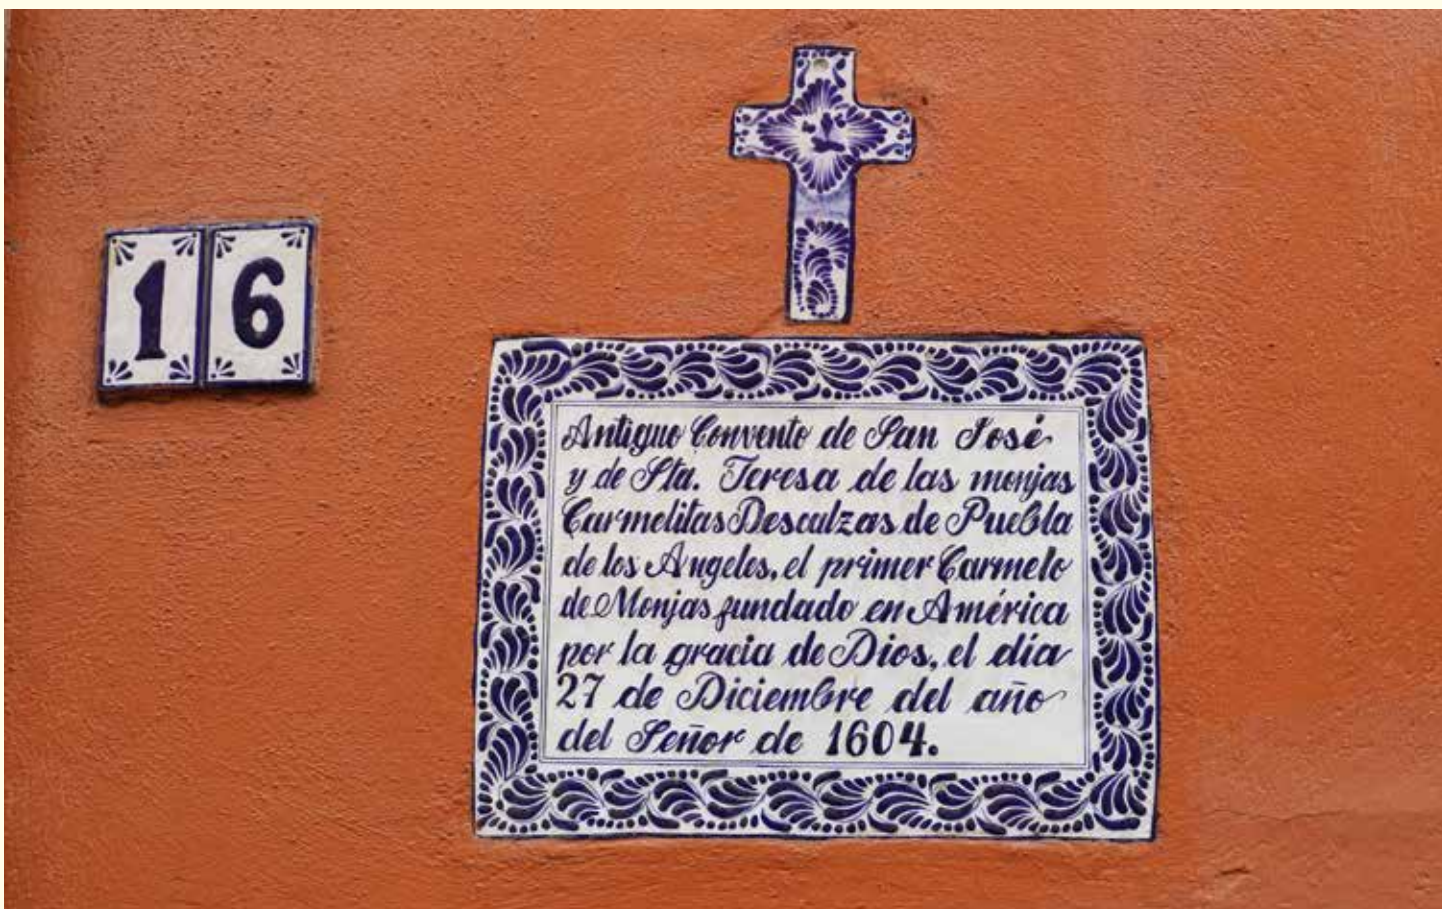 16
Antiguo Convento de San José
y de Sta. Teresa de las monjas
Carmelitas Descalzas de Puebla
de los Angeles, el primer Carmelo
de Monjas fundado en América
por la gracia de Dios, el día
27 de Diciembre del año
del Señor de 1604.